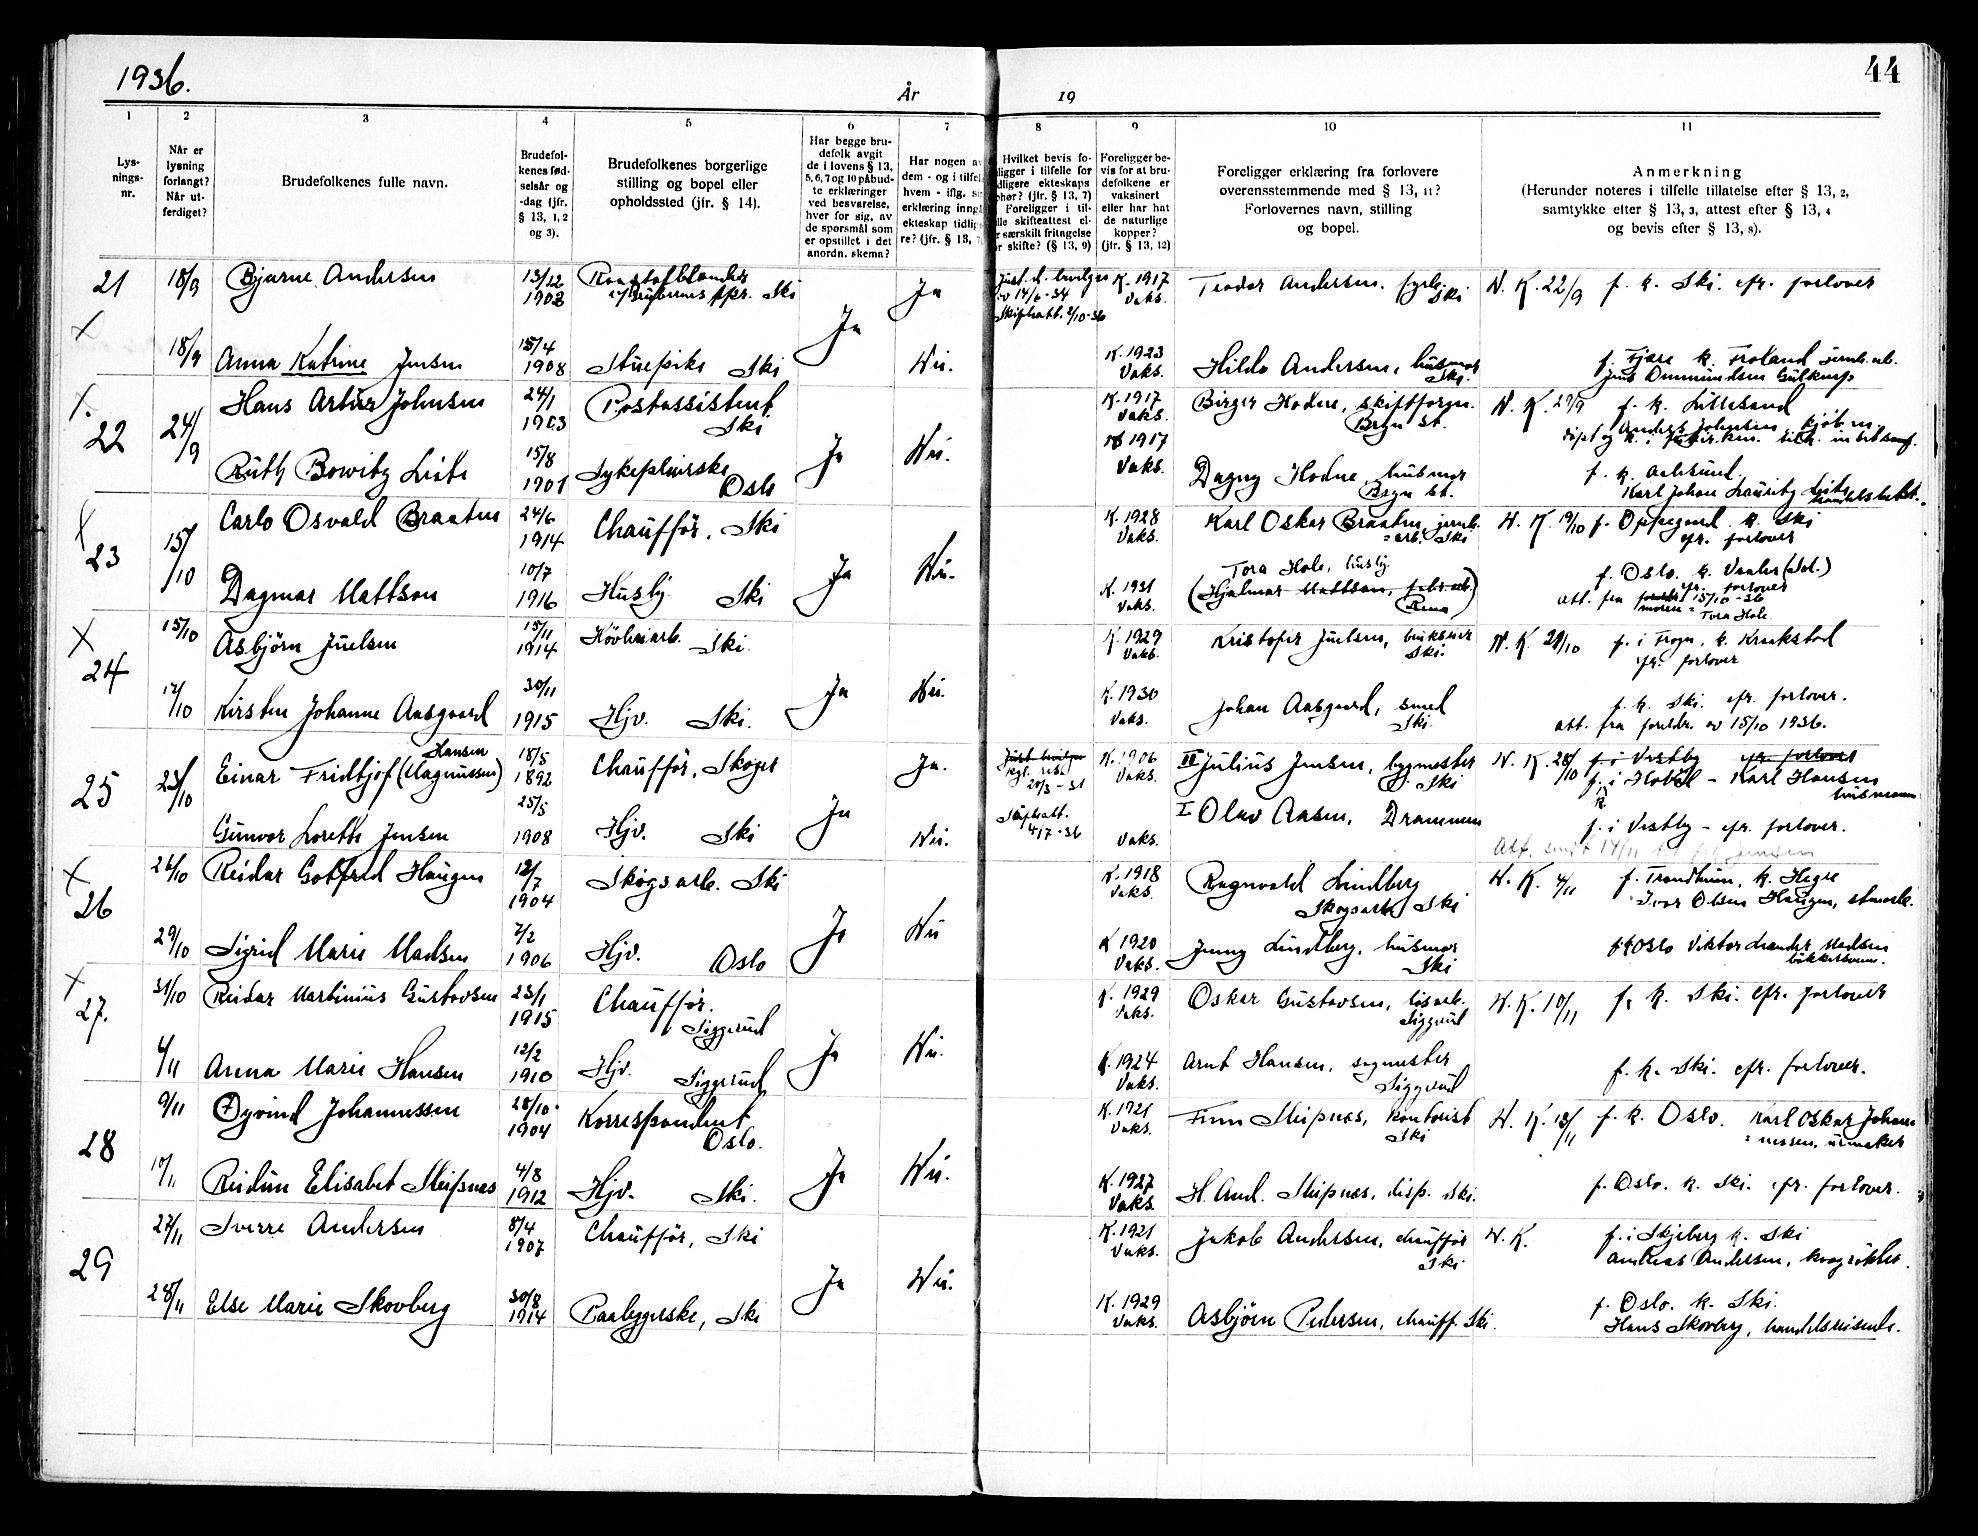 1936.
År
19
44
1
2
3
4
5
6
7
8
9
10
11
Lys-
nings-
nr.
Når er
lysning
forlangt?
Når ut-
ferdiget?
Brudefolkenes fulle navn.
Brudefol-
kenes fød-
selsår og
-dag (jfr.
§ 13, 1, 2
og 3).
Brudefolkenes borgerlige
stilling og bopel eller
opholdssted (jfr. § 14).
Har begge bru-
defolk avgit
de i lovens § 13,
5, 6, 7 og 10 påbud-
te erklæringer
ved besvarelse,
hver for sig, av
de spørsmål som
er opstillet i det
anordn. skema?
Har nogen av
dem - og i tilfel
hvem - iflg. si
erklæring inng
ekteskap tidlig
re? (jfr. § 13, 7
Hvilket bevis fo-
ligger i tilfelle for
dligere ekteskaps
phør? (jfr. § 13, 7)
Foreligger i til-
lle skifteattest el-
r særskilt fritagelse
r skifte? (§ 13, 9)
Foreligger be-
vis for at bru-
defolkene er
vaksinert
eller har hat
de naturlige
kopper?
(jfr. § 13, 12)
Foreligger erklæring fra forlovere
overensstemmende med § 13, 11?
Forlovernes navn, stilling
og bopel.
Anmerkning
(Herunder noteres i tilfelle tillatelse efter § 13, 2,
samtykke efter § 13, 3, attest efter § 13, 4
og bevis efter § 13, 8).
21 18/9 Bjarne Andersen 13/12 1902 Ski Ja K. 1917 Vaks. Teodor Andersen. Ski N. K. 22/9 f. k. Ski. cfr. forlover
Skifteatt. 2/10-36
18/9 Anna Katrine Jensen 15/4 1908 Stuepike Ski Ja Nei. K. 1923 Vaks. Hilda Andersen, husmor Ski. f. Fjære k. Froland
22 24/9 Hans Artur Johnsen 24/1 1903 Postassistent Ski K. 1917 Vaks. Birger Hodne, Bryn st. N. K. 29/9 f. k. Lillesand
Anders Johnsen
Ruth Bowitz Leite 15/8 1901 Sykepleierske Oslo Ja Nei. K 1917 Vaks. Dagny Hodne husmor Bryn st. f. k. Aalesund.
Karl Johan Lauritz Leite
23 15/10 Carlo Osvald Braaten 24/6 1914 Chauffør. Ski K. 1928 Vaks. Karl Oskar Braaten, jernb. arb. Ski N. K. 19/10 f. Oppegaard k. Ski
cfr. forlover
Dagmar Mattson 10/7 1916 Husby. Ski Ja Nei. K. 1931 Vaks. Tora Hole, husby.
(Hjalmar Mattson, Rena) f. Oslo. k. Vaaler (Sol.)
cfr. forlover
att. fra moren 15/10-36
Tora Hole
24 15/10 Asbjörn Juelsen 15/11 1914 Ski. K. 1929 Vaks. Kristofer Juelsen, Ski. N. K. 20/10 f. i Frogn, k. Kraakstad
cfr. forlover
17/10 Kirsten Johanne Aasgaard 30/11 1915 Hjv. Ski. Ja Nei. K. 1930 Vaks. Johan Aasgaard, smed Ski. f. k. Ski. cfr. forlover.
att. fra foreldr. av 15/10 1936.
25 23/10 Einar Fridtjof (Magnussen) Hansen 18/5 1892 Chauffør, Skoger Ja. 20/3-31 K. 1906 Vaks. III Julius Jensen, bygmester Ski N. K. 28/10 f. i Vestby cfr. forlover
f. i Hobøl - Karl Hansen
Gunvor Lorette Jensen 25/5 1908 Hjv. Ski Ja Nei. Skifteatt. 4/7-36 Vaks. I Olav Aasen, Drammen f. i Vestby - cfr. forlover.
26 26/10 Reidar Gotfred Haugen 12/7 1904 Skogsarb. Ski K. 1918 Vaks. Ragnvald Lindberg Skogsarb. Ski N. K. 4/11 f. Trondheim, k. Hegre
Ivar Olsen Haugen,
29/10 Sigrid Marie Madsen 7/2 1906 Hjv. Oslo Ja Nei K 1920 Vaks. Jenny Lindberg, husmor Ski f. k. Oslo Viktor Leander Madsen
27. 31/10 Reidar Martinius Gustavsen 23/1 1915 Chauffør. Siggerud K. 1929 Vaks. Oskar Gustavsen, Siggerud N. K. 10/11 f. k. Ski. cfr. forlover
4/11 Anna Marie Hansen 12/2 1910 Hjv. Siggerud Ja Nei. K. 1924 Vaks. Arnt Hansen, sagmester Siggerud f. k. Ski. cfr. forlover.
28 9/11 Øyvind Johannessen 28/10 1904 Korrespondent Oslo. K. 1921 Vaks. Finn Sleipnæs, kontorist Ski N. K. 13/11 f. k. Oslo. Karl Oskar Johan-
nessen, urmaker
10/11 Reidun Elisabet Sleipnæs 4/8 1912 Hjv. Ski. Ja Nei. K. 1927 Vaks. H. And. Sleipnæs, disp. Ski. f. Oslo. k. Ski. cfr. forlover.
29 27/11 Sverre Andersen 8/4 1907 Chauffør, Ski K. 1921 Vaks. Jakob Andersen, chauffør Ski N. K. f. i Skjeberg k. Ski
Andreas Andersen,
28/11 Else Marie Skovberg 30/8 1914 Ski Ja Nei. K. 1929 Vaks. Asbjørn Pedersen, chauff. Ski. f. Oslo. k. Ski.
Hans Skovberg, handelsreisende.